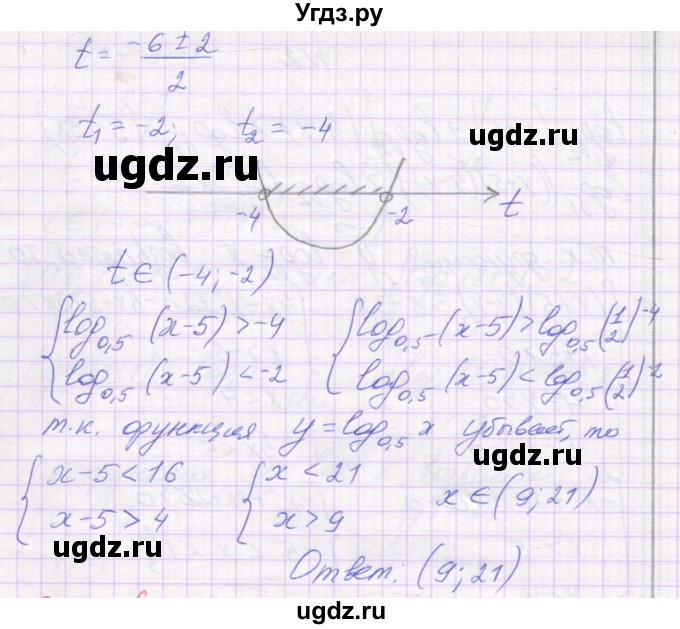 Угдз.ру
t = (-6 ± 2)/2
t₁ = -2; t₂ = -4
ugdz.ru
ugdz.ru
-4 -2 t
t ∈ (-4; -2)
{ log₀,₅ (x-5) > -4 { log₀,₅ (x-5) > log₀,₅ (1/2)⁻⁴
log₀,₅ (x-5) < -2 log₀,₅ (x-5) < log₀,₅ (1/2)⁻²
т.к. функция y = log₀,₅ x убывает, то
{ x-5 < 16 { x < 21 x ∈ (9; 21)
x-5 > 4 x > 9
ugdz.ru
Ответ: (9; 21)
ugdz.ru